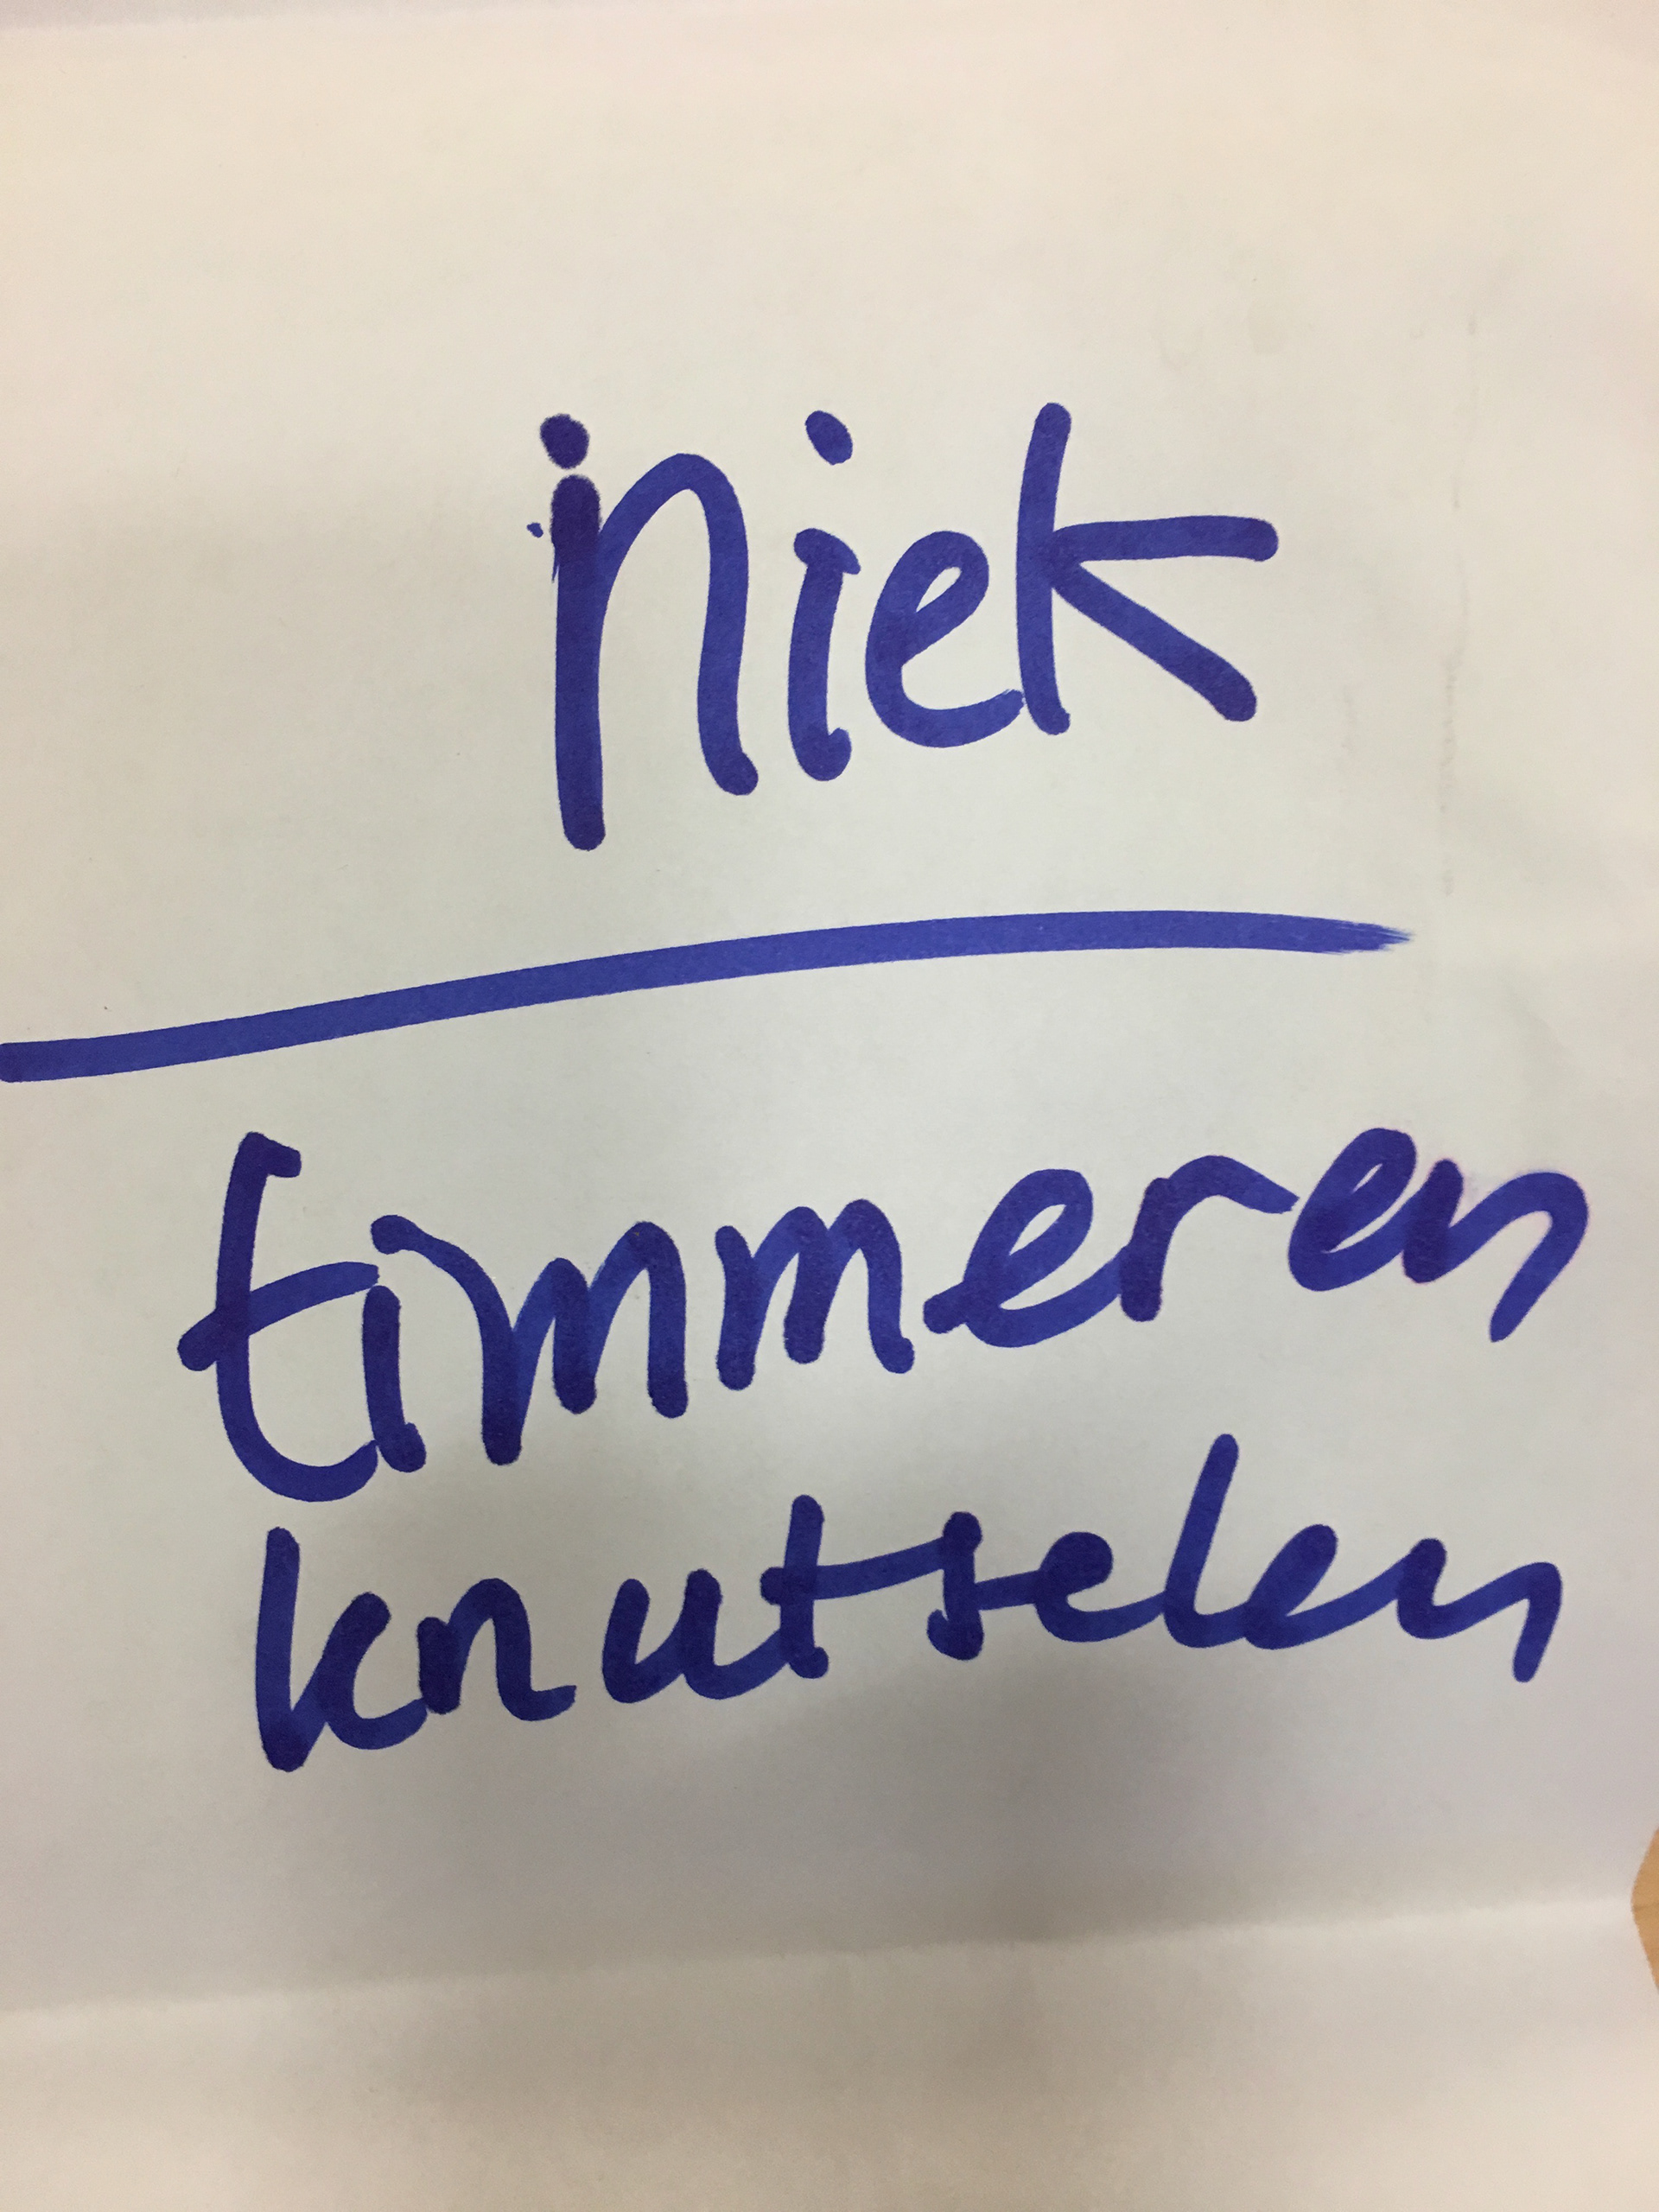 niek
timmeren
knutselen